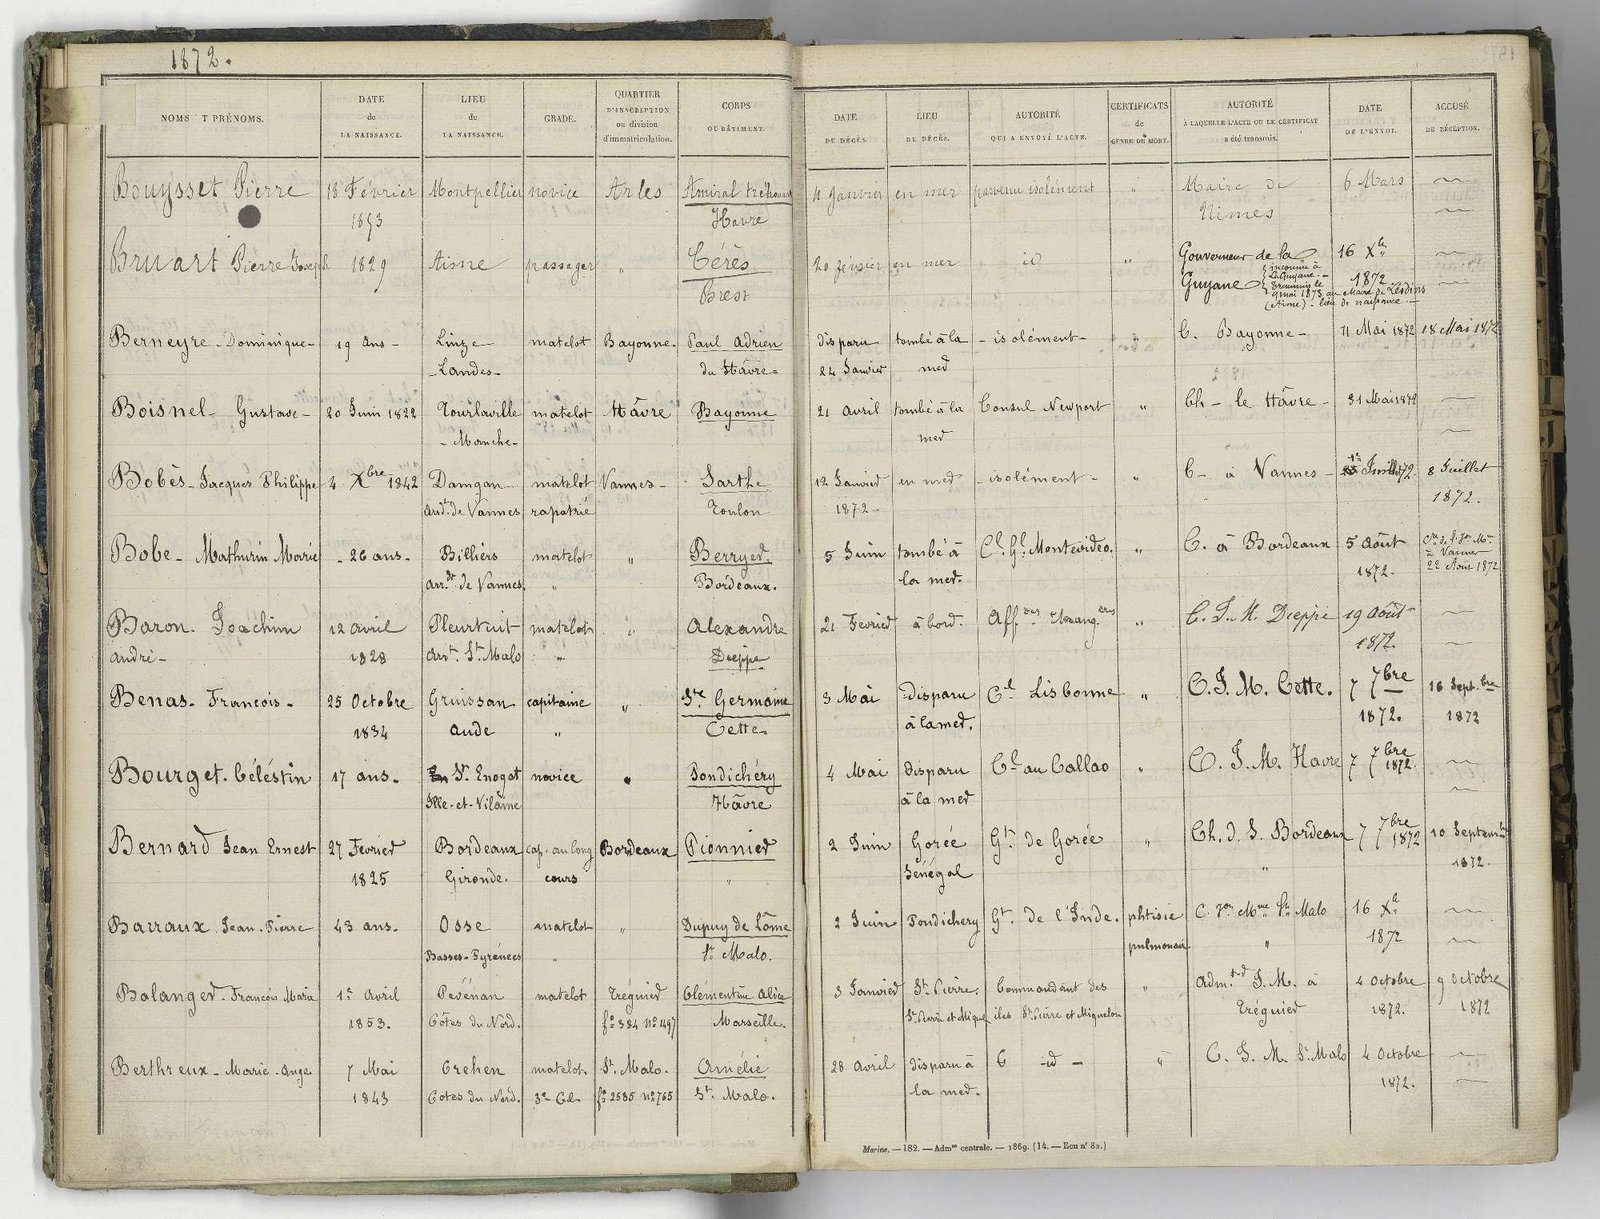 1872.
NOMS T PRÉNOMS.
DATE
de
LA NAISSANCE.
LIEU
de
LA NAISSANCE.
GRADE.
QUARTIER
D'INSCRIPTION
ou division
d'immatriculation.
CORPS
OU BÂTIMENT.
DATE
DU DÉCÈS.
LIEU
DU DÉCÈS.
AUTORITÉ
QUI A ENVOYÉ L'ACTE.
CERTIFICATS
de
GENRE DE MORT.
AUTORITÉ
À LAQUELLE L'ACTE OU LE CERTIFICAT
a été transmis.
DATE
DE L'ENVOI.
ACCUSÉ
DE RÉCEPTION.
Bouysset Pierre 18 Février Montpellier novice Arles Amiral 4 Janvier en mer parvenu isolément " Maire de 6 Mars
1853 Havre Nimes
Bruart Pierre Joseph 1829 Aisne passager " Cérès 20 février en mer id " Gouverneur de la 16 Xbre
Brest Guyane 1872
inconnu à
La Guyane. -
Transmis le
9 mai 1873 au Maire de
(Aisne) - lieu de naissance -
Berneyre - Dominique - 19 ans - Linxe - matelot Bayonne. Paul Adrien disparu tombé à la - isolément - " C. Bayonne - 11 Mai 1872 18 Mai 1872
- Landes - du Hâvre - 24 Janvier mer
Boisnel - Gustave - 20 Juin 1822 Tourlaville matelot Hâvre Bayonne 21 avril tombé à la Consul Newport " Ch - le Hâvre - 31 Mai 1872
- Manche - mer
Bobès - Jacques Philippe 4 Xbre 1842 Damgan matelot Vannes - Sarthe 12 Janvier en mer - isolément - " C - à Vannes - Juillet 72. 8 Juillet
arrt. de Vannes rapatrié Toulon 1872 - 1872.
Bobe - Mathurin Marie - 26 ans - Billiers matelot " Berryer 5 Juin tombé à Cl. Gl. Montevideo. " C. à Bordeaux 5 août
arrdt de Vannes " Bordeaux. la mer. 1872. à Vannes
22 Août 1872
Baron. Joachim 12 avril Pleurtuit matelot " Alexandre 21 Février à bord. Affres Etrangères " C. I. M. Dieppe 19 août
andré - 1828 arrt. St. Malo " Dieppe 1872.
Benas - François - 25 Octobre Gruissan capitaine " Ste Germaine 3 Mai Disparu Cl Lisbonne " C. I. M. Cette. 7 7bre 16 Sept.bre
1834 Aude " Cette. à la mer. 1872. 1872
Bourget - Céléstin 17 ans - St. Enogat novice " Pondichéry 4 Mai disparu Cl au Callao " C. I. M. Havre 7 7bre 1872.
Ille-et-Vilaine Hâvre à la mer
Bernard Jean Ernest 27 Fevrier Bordeaux cap. au long Bordeaux Pionnier 2 Juin Gorée Gt. de Gorée " Ch. d. S. Bordeaux 7 7bre 1872 10 Septembre
1825 Gironde. cours " Sénégal " 1872.
Barraux Jean-Pierre 43 ans - Osse matelot " Dupuy de Lôme 2 Juin Pondichery Gt. de l'Inde. phtisie St. Malo 16 Xbre
Basses-Pyrénées " St. Malo. pulmonaire " 1872
Balanger - François Marie 1er avril Pévénan matelot Tréguier Clémentine Alice 3 Janvier St. Pierre. Commandant des " Adm. I. M. à 4 Octobre 9 Octobre
1853. Côtes du Nord. fo 384 no 1497 Marseille. St. Pierre et Miquel. iles St. Pierre et Miquelon Tréguier 1872. 1872
Berthreux - Marie - Ange 7 Mai Crehen matelot St. Malo. Amélie 28 avril disparu à C - id - " C. I. M. St. Malo 4 Octobre
1843 Cotes du Nord. 3e Cl. fo 2535 no 765 St. Malo. la mer. 1872.
Marine. — 182. — Admon centrale. — 1869. (14. — Ecu n° 82.)